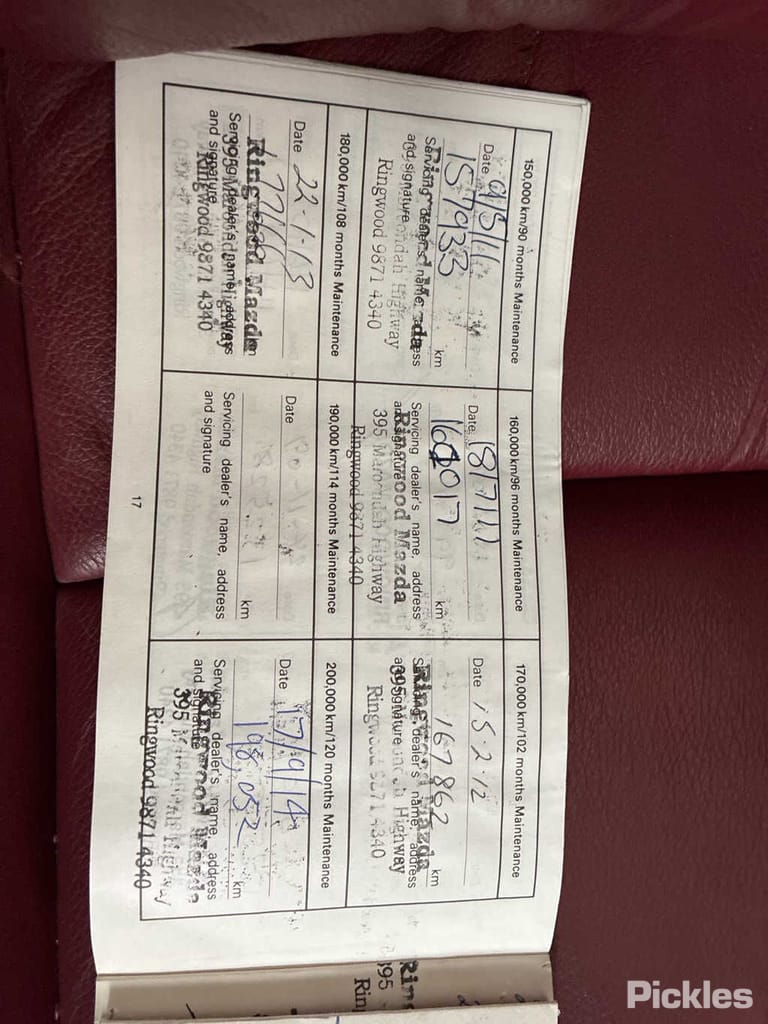 150,000 km/90 months Maintenance
Date
157933 km
Servicing dealer's name, address
and signature
Ringwood Mazda
395 Maroondah Highway
Ringwood 9871 4340
160,000 km/96 months Maintenance
Date 18/7/11
160017 km
Servicing dealer's name, address
and signature
Ringwood Mazda
395 Maroondah Highway
Ringwood 9871 4340
170,000 km/102 months Maintenance
Date 15.2.12
167862 km
Servicing dealer's name, address
and signature
Ringwood Mazda
395 Maroondah Highway
Ringwood 9871 4340
180,000 km/108 months Maintenance
Date 22.1.13
km
Servicing dealer's name, address
and signature
Ringwood Mazda
395 Maroondah Highway
Ringwood 9871 4340
190,000 km/114 months Maintenance
Date
km
Servicing dealer's name, address
and signature
200,000 km/120 months Maintenance
Date 17/9/14
198,052 km
Servicing dealer's name, address
and signature
Ringwood Mazda
395 Maroondah Highway
Ringwood 9871 4340
17
Pickles